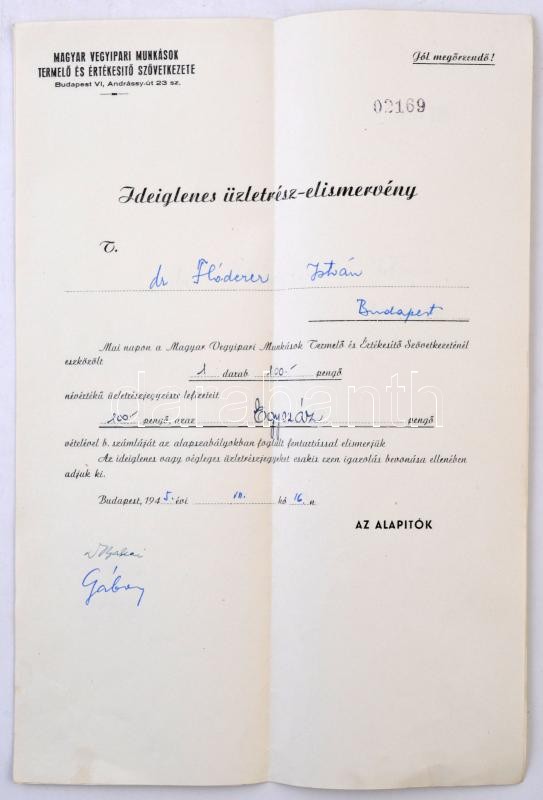 MAGYAR VEGYIPARI MUNKÁSOK
TERMELŐ ÉS ÉRTÉKESITŐ SZÖVETKEZETE
Budapest VI, Andrássy-út 23 sz.
Jól megőrzendő!
02169
Ideiglenes üzletrész-elismervény
T.
dr Flóderer István
Budapest
Mai napon a Magyar Vegyipari Munkások Termelő és Értékesitő Szövetkezeténél
eszközölt 1 darab 100.- pengő
névértékű üzletrészjegyzésre lefizetett
100.- pengő, azaz Egyszáz pengő
vételével b. számláját az alapszabályokban foglalt fentartással elismerjük
Az ideiglenes vagy végleges üzletrészjegyeket csakis ezen igazolás bevonása ellenében
adjuk ki.
Budapest, 1945. évi VII. hó 16-n
AZ ALAPITÓK
Gábor
darabanth